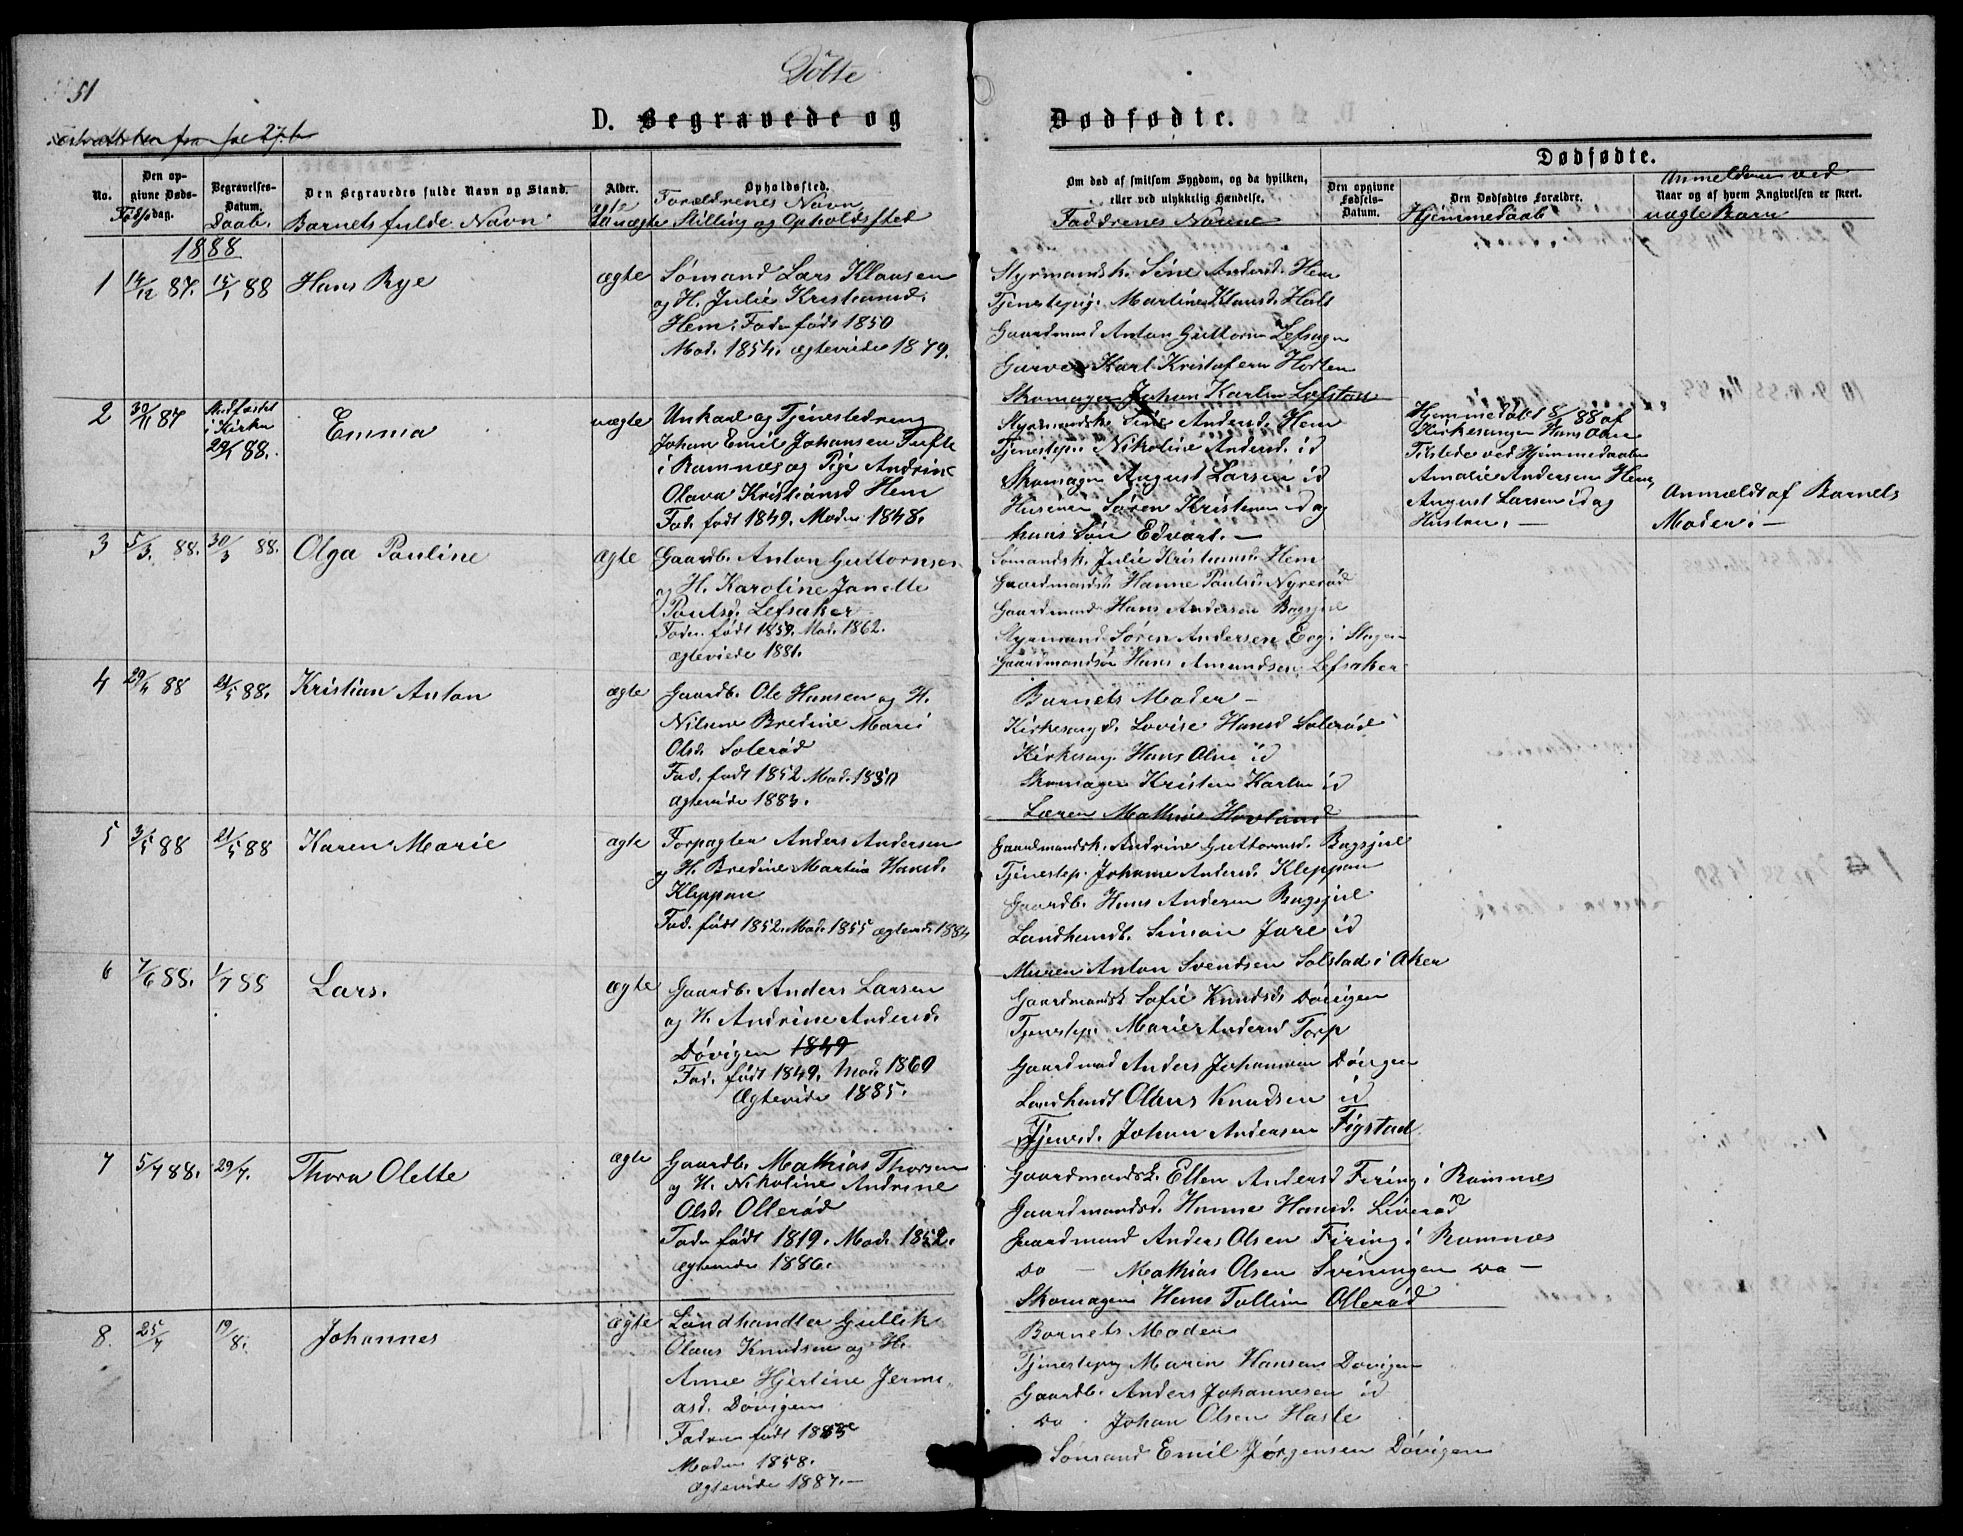 51
Döbte
D. Begravede og
Dödfödte.
fra
No.
Den op-
givne Døds-
dag.
Föds
Begravelses-
Datum.
Daab.
Den Begravedes fulde Navn og Stand.
Barnets fulde Navn.
Alder.
uægte
Opholdssted.
Forældrenes Navn
Stilling og Opholdssted
Om død af smitsom Sygdom, og da hvilken,
eller ved ulykkelig Hændelse.
Faddrenes Navne
Dødfødte.
Den opgivne
Fødsels-
Datum.
Den Dødfødtes Forældre.
Hjemmedaab
Anmeldelsen ved
Naar og af hvem Angivelsen er skeet.
uægte Barn
1888
1 14/12 87. 15/1 88 Hans Rye ægte
Sömand Lars Klausen
og H. Julie Kristiansd.
Hem. Fader født 1850
Mod. 1854. ægteviede 1879.
Styrmandsk. Sine Andersd. Hem
Tjenestepig. Martine Klausd. Hals
Gaardmand Anton Guttormsen Lefsager
Garver Karl Kristofersen Horten
Skomager Johan Karlsen Lefsager
2 30/11 87 Stadfæstet
i Kirken
29/1 88. Emma uægte
Unkarl og Tjenestedreng
Johan Emil Johansen Tufte
i Ramnæs og Pige Andrine
Olava Kristiansd Hem
Fad. født 1849. Moder 1848.
Styrmandsk. Sine Andersd. Hem
Tjenestepi. Nikoline Andersd. id
Skomager August Larsen id
Husmand Sören Kristensen id og
hans Sön Edvart. —
Hjemmedöbt 8/1 88 af
Kirkesanger Hans Olsen
Tilstede ved Hjemmedaaben
Amalie Andersen Hem,
August Larsen id og
Hustru. —
Anmeldt af Barnets
Moder. —
3 5/3. 88. 30/3 88. Olga Pauline ægte
Gaardb. Anton Guttormsen
og H. Karoline Janette
Paulsd. Lefsaker
Fader født 1859. Mod. 1862.
ægteviede 1881.
Sömandsk. Julie Kristiansd. Hem
Gaardmandsk. Hanne Pauls. Nyreröd
Gaardmand Hans Andersen Bagsjul
Styrmand Sören Andersen Eeg i Slagen
Gaardmandsön Hans Amundsen Lefsaker
4 29/4 88 21/5 88. Kristian Anton ægte
Gaardb. Ole Hansen og H.
Nilsine Bredine Marie
Olsd. Solerød
Fad. født 1852 Mod. 1850
ægteviede 1883.
Barnets Moder —
Kirkesang.d. Lovise Hansd Solerød
Kirkesang. Hans Olsen id
Skomager Kristen Karlsen id
Lærer Mathias Hovland
5 3/5 88 21/5 88 Karen Marie ægte
Forpagter Anders Andersen
og H. Bredine Martine Hansd.
Kleppan
Fad. født 1852. Mod. 1855 ægtevied. 1884
Gaardmandsk. Andrine Guttormsd. Bagsjul
Tjenestep. Johanne Andersd. Kleppan
Gaardb. Hans Andersen Bagsjul
Landhandl. Simon Jare id
Murer Anton Svendsen Solstad i Aker
6 7/6 88. 1/7 88 Lars. ægte
Gaardb. Anders Larsen
og H. Andrine Andersd.
Dövigen 1849
Fad. født 1849. Mod. 1860
Ægteviede 1885.
Gaardmandsk Sofie Knudsd. Dövigen
Tjenstepi. Marie Andersd Torp
Gaardmand Anders Johannsen Dövigen
Landhandl Olaus Knudsen id
Tjensd. Johan Andersen Figstad
7 5/7 88. 29/7. Thora Olette ægte
Gaardb. Mathias Thorsen
og H. Nikoline Andrine
Olsd. Olleröd
Fader født 1819. Mod. 1852.
ægteviede 1886.
Gaardmandsk. Ellen Andersd Firing i Ramnes
Gaardmandsd. Hanne Hansd. Liveröd
Gaardmand Anders Olsen Firing i Ramnæs
Do — Mathias Olsen Sviningen Do —
Skomager Hans Tollisen Olleröd
8. 25/7 19/8. Johannes ægte
Landhandler Gullik
Olaus Knudsen og H.
Anne Hjertine Jermi-
asd. Dövigen
Faderen født 1863
Moder 1858.
Ægteviede 1887. —
Barnets Moder
Tjenstepig Maren Hansen Dövigen
Gaardb. Anders Johannesen id
Do. Johan Olsen Hasle
Sömand Emil Jørgensen Dövigen